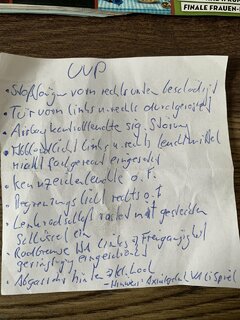 FINALE FRAUEN-
UVP
• Stoßfänger vorn rechts unten beschädigt
• Tür vorn links u. rechts durchgerostet
• Airbag Kontrollleuchte sig. Störung
• Abblendlicht links u. rechts Leuchtmittel
nicht fachgerecht eingesetzt
• Kennzeichenleuchte o. F.
• Begrenzungslicht rechts o. F
• Lenkrad schloß rastet mit gesteckten
Schlüssel ein
• links Freigängigkeit
geringfügig eingeschränkt
• Abgasrohr hinten Loch
- Hinweis: Axialgelenk li Spiel